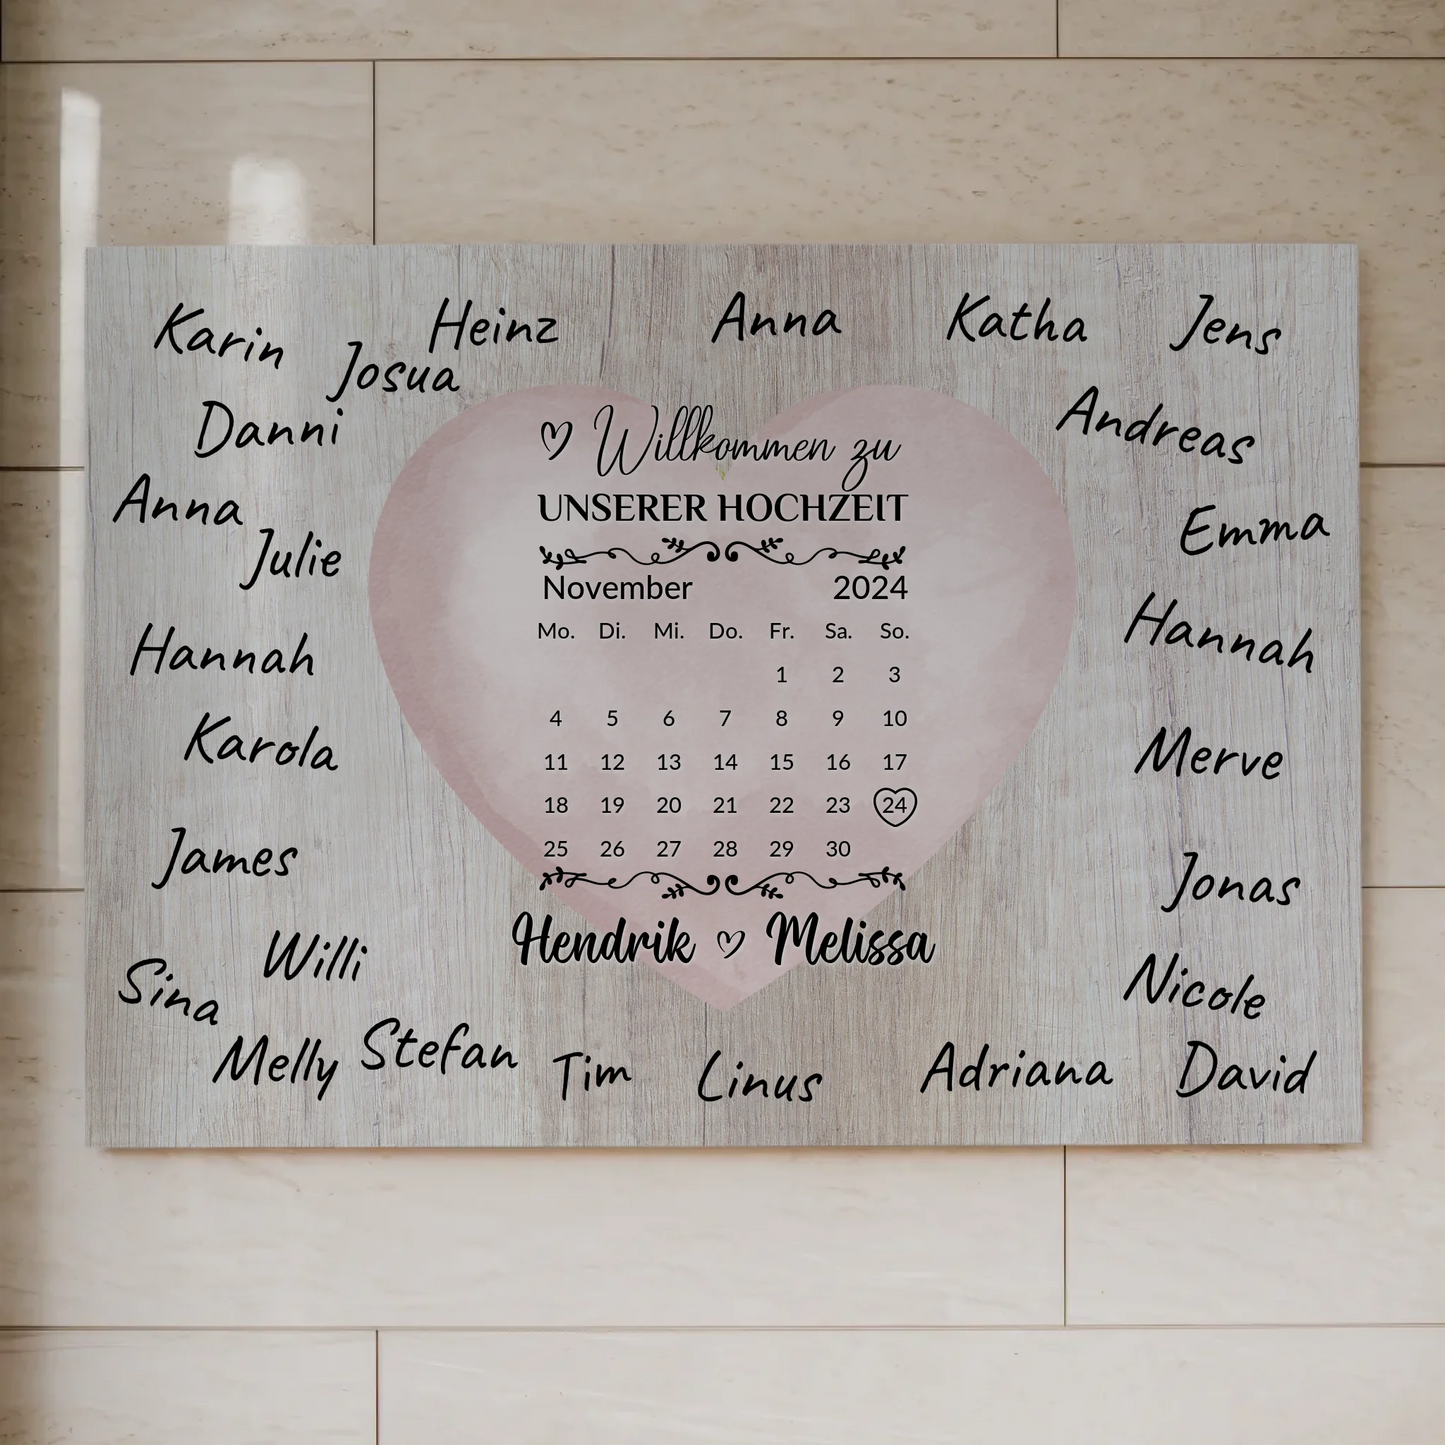 Karin
Heinz
Anna
Katha
Jens
Josua
Danni
Andreas
Anna
Julie
Emma
Hannah
Hannah
Karola
Merve
James
Jonas
Willi
Sina
Nicole
Melly
Stefan
Tim
Linus
Adriana
David
♡ Willkommen zu
UNSERER HOCHZEIT
November 2024
Mo. Di. Mi. Do. Fr. Sa. So.
1 2 3
4 5 6 7 8 9 10
11 12 13 14 15 16 17
18 19 20 21 22 23 24
25 26 27 28 29 30
Hendrik ♡ Melissa